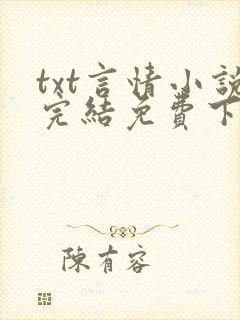 txt言情小說
完結免費下
陳有容